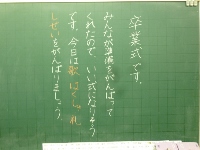 卒業式です。
みんなが準備をがんばって
くれたので、いい式になりそう
です。今日は歌、はくしゅ、礼
しせいをがんばりましょう。